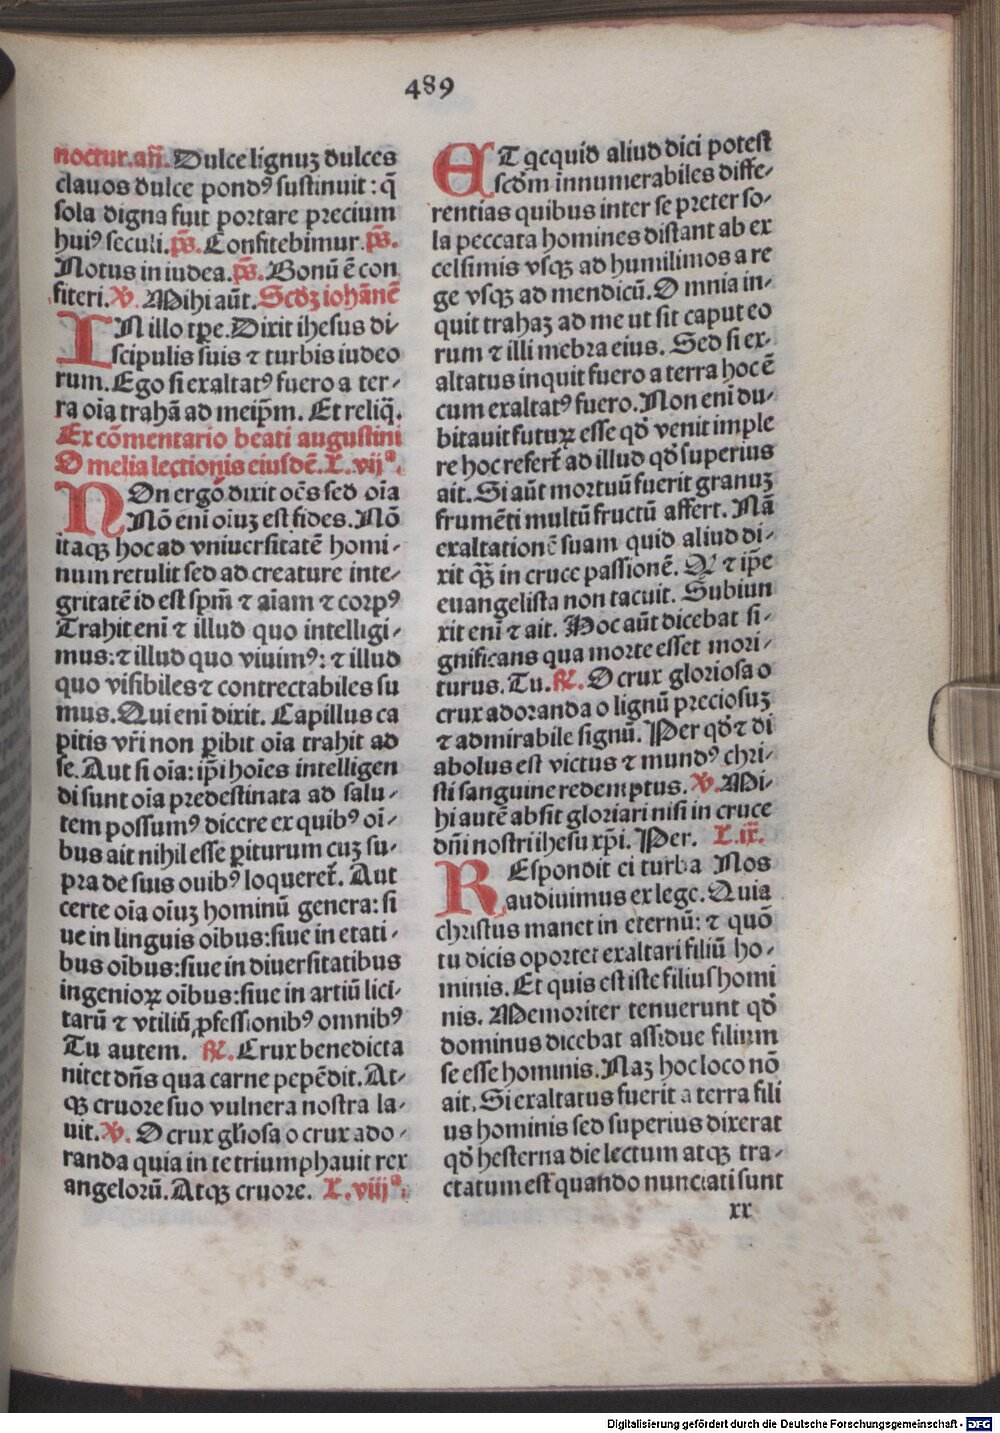 489
noctur.añ. Dulce lignuʒ dulces
clauos dulce pondꝰ sustinuit : q̃
sola digna fuit portare precium
huiꝰ seculi. p̃s. Confitebimur. p̃s.
Notus in iudea. p̃s. Bonū ē con
fiteri. ℣. Mihi aūt. Scd̃ʒ iohānē
IN illo tp̃e. Dixit ihesus di-
scipulis suis ⁊ turbis iudeo
rum. Ego si exaltatꝰ fuero a ter-
ra oīa trahā ad meip̃m. Et reliq̃.
Ex cōmentario beati augustini
Omelia lectionis eiusdē. L. vijᵃ.
NOn ergo dixit oēs sed oīa
Nō eni oiuʒ est fides. Nō
itaqꝫ hoc ad vniuersitatē homi-
num retulit sed ad creature inte-
gritatē id est sp̃m ⁊ aīam ⁊ corpꝰ
Trahit eni ⁊ illud quo intelligi-
mus: ⁊ illud quo viuimꝰ: ⁊ illud
quo visibiles ⁊ contrectabiles su
mus. Qui eni dixit. Capillus ca
pitis vr̃i non ꝑibit oīa trahit ad
se. Aut si oīa: ip̃i hoīes intelligen
di sunt oīa predestinata ad salu-
tem possumꝰ dicere ex quibꝰ oī-
bus ait nihil esse ꝑiturum cuʒ su-
pra de suis ouibꝰ loqueret̃. Aut
certe oīa oīuʒ hominū genera: si
ue in linguis oībus: siue in etati-
bus oībus: siue in diuersitatibus
ingenioꝝ oībus: siue in artiū lici-
tarū ⁊ vtiliū ꝓfessionibꝰ omnibꝰ
Tu autem. ℟. Crux benedicta
nitet dn̄s qua carne pepēdit. At-
qꝫ cruore suo vulnera nostra la-
uit. ℣. O crux gl̃iosa o crux ado-
randa quia in te triumphauit rex
angelorū. Atqꝫ cruore. L. viijᵃ.
ET qcquid aliud dici potest
scd̃m innumerabiles diffe-
rentias quibus inter se preter so-
la peccata homines distant ab ex
celsimis vsqꝫ ad humilimos a re
ge vsqꝫ ad mendicū. Omnia in-
quit trahaʒ ad me ut sit caput eo
rum ⁊ illi mēbra eius. Sed si ex-
altatus inquit fuero a terra hoc ē
cum exaltatꝰ fuero. Non eni du-
bitauit futuꝝ esse qd̃ venit imple
re hoc refert̃ ad illud qd̃ superius
ait. Si aūt mortuū fuerit granuʒ
frumēti multū fructū affert. Nā
exaltationē suam quid aliud di-
xit q̃ꝫ in cruce passionē. Qd̃ ⁊ ip̃e
euangelista non tacuit. Subiun
xit eni ⁊ ait. Hoc aūt dicebat si-
gnificans qua morte esset mori-
turus. Tu. ℟. O crux gloriosa o
crux adoranda o lignū preciosuʒ
⁊ admirabile signū. Per qd̃ ⁊ di
abolus est victus ⁊ mundꝰ chri-
sti sanguine redemptus. ℣. Mi-
hi autē absit gloriari nisi in cruce
dn̄i nostri ihesu xp̃i. Per. L. ix.
REspondit ei turba Nos
audiuimus ex lege. Quia
christus manet in eternū: ⁊ quō
tu dicis oportet exaltari filiū ho-
minis. Et quis est iste filius homi
nis. Memoriter tenuerunt qd̃
dominus dicebat assidue filium
se esse hominis. Naʒ hoc loco nō
ait. Si exaltatus fuerit a terra fili
us hominis sed superius dixerat
qd̃ hesterna die lectum atqꝫ tra-
ctatum est quando nunciati sunt
xx
Digitalisierung gefördert durch die Deutsche Forschungsgemeinschaft - DFG